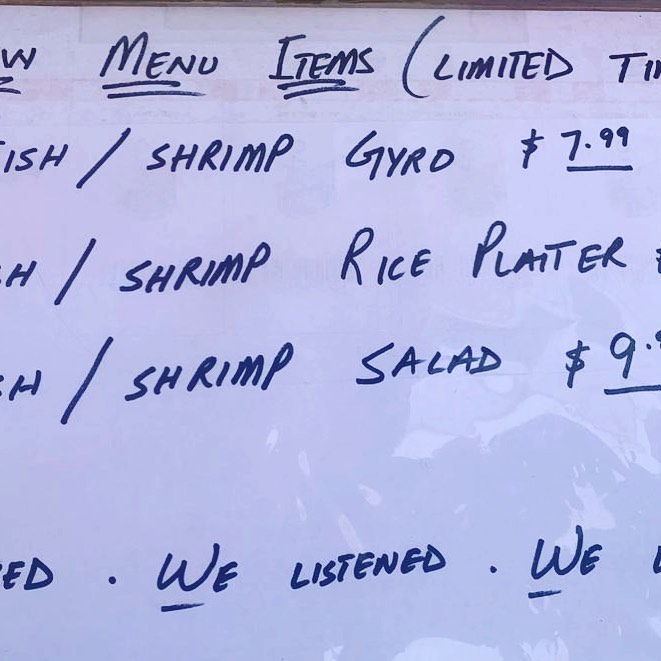 W MENU ITEMS (LIMITED TI
FISH / SHRIMP GYRO $ 7.99
SH / SHRIMP RICE PLATTER $
SH / SHRIMP SALAD $ 9.9
ED . WE LISTENED . WE